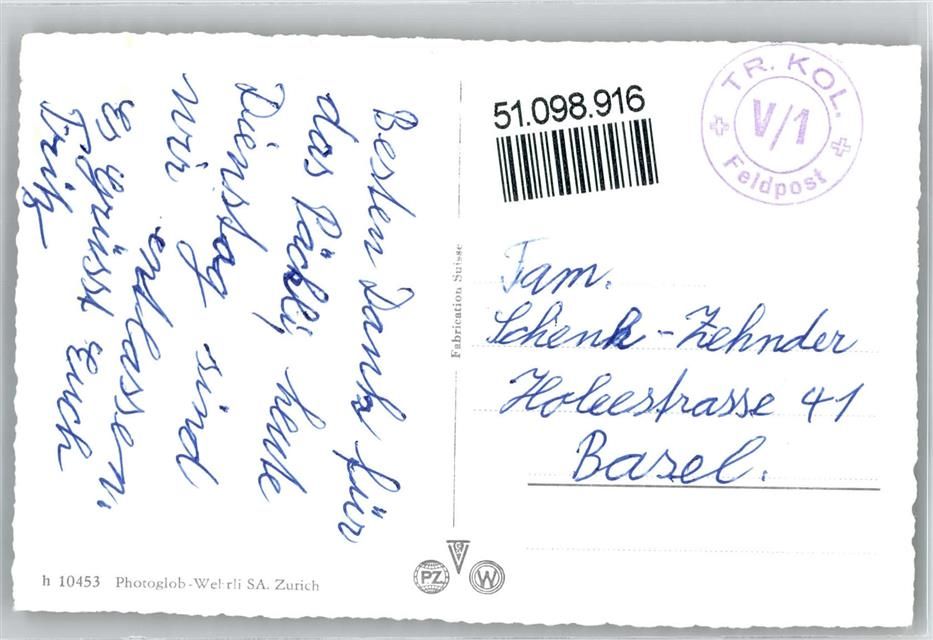 Besten Dank für
das Päckli, heute
Dienstag sind
wir entlassen.
Es grüsst Euch
Fritz
Fabrication Suisse
51.098.916
TR. KOL.
V/1
Feldpost
Fam.
Schenk-Zehnder
Holeestrasse 41
Basel.
h 10453 Photoglob-Wehrli SA. Zurich
PZ
W